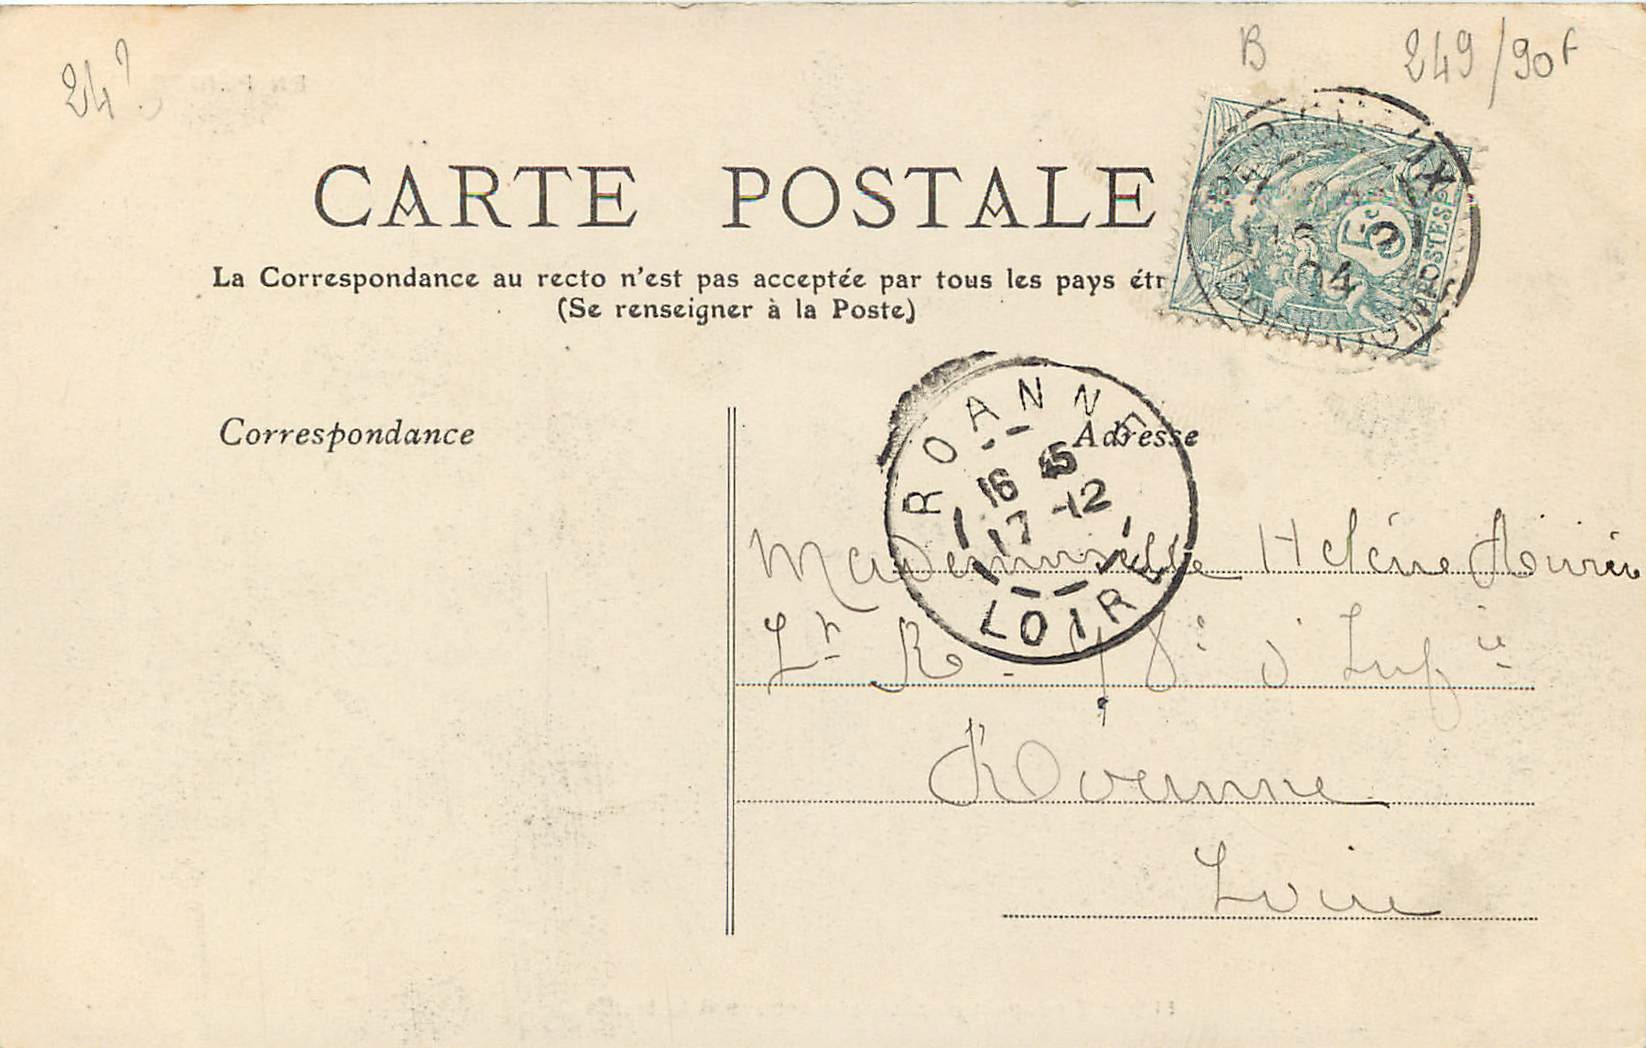 24?
B
249/90f
CARTE POSTALE
La Correspondance au recto n'est pas acceptée par tous les pays étr
(Se renseigner à la Poste)
5c
POSTES
04
Correspondance
Adresse
ROANNE
16 45
17 -12
LOIRE
Mademoiselle Hélène
Lt R. 98e d'Infie
Roanne
Loire